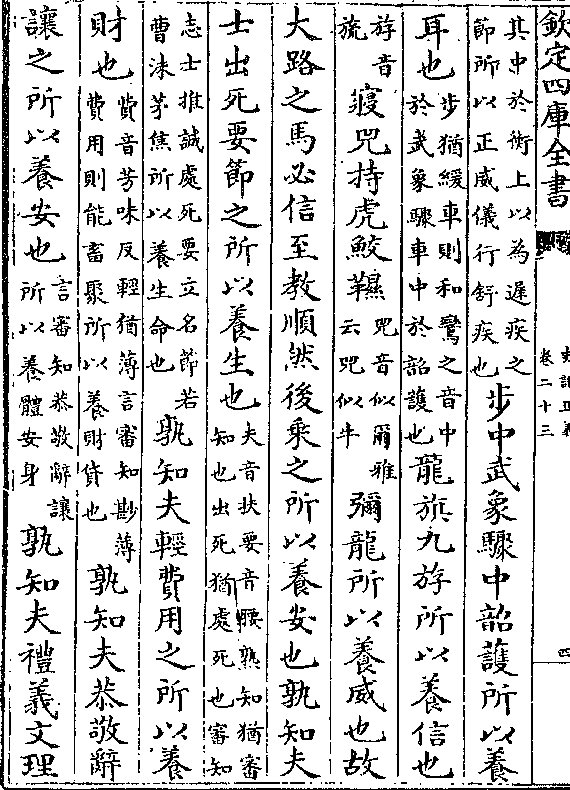 欽定四庫全書
史記正義
卷二十三
四
其中於衡上以為遲疾之
節所以正威儀行舒疾也
步中武象驟中韶護所以養
耳也
步猶緩車則和鸞之音中
於武象驟車中於韶護也
龍旂九斿所以養信也
斿音
旒
寢兕持虎鮫韅
兕音似爾雅
云兕似牛
彌龍所以養威也故
大路之馬必信至教順然後乘之所以養安也孰知夫
士出死要節之所以養生也
夫音扶要音腰熟知猶審
知也出死猶處死也審知
志士推誠處死要立名節若
曹沬茅焦所以養生命也
孰知夫輕費用之所以養
財也
費音芳味反輕猶薄言審知尠薄
費用則能畜聚所以養財貨也
孰知夫恭敬辭
讓之所以養安也
言審知恭敬辭讓
所以養體安身
孰知夫禮義文理